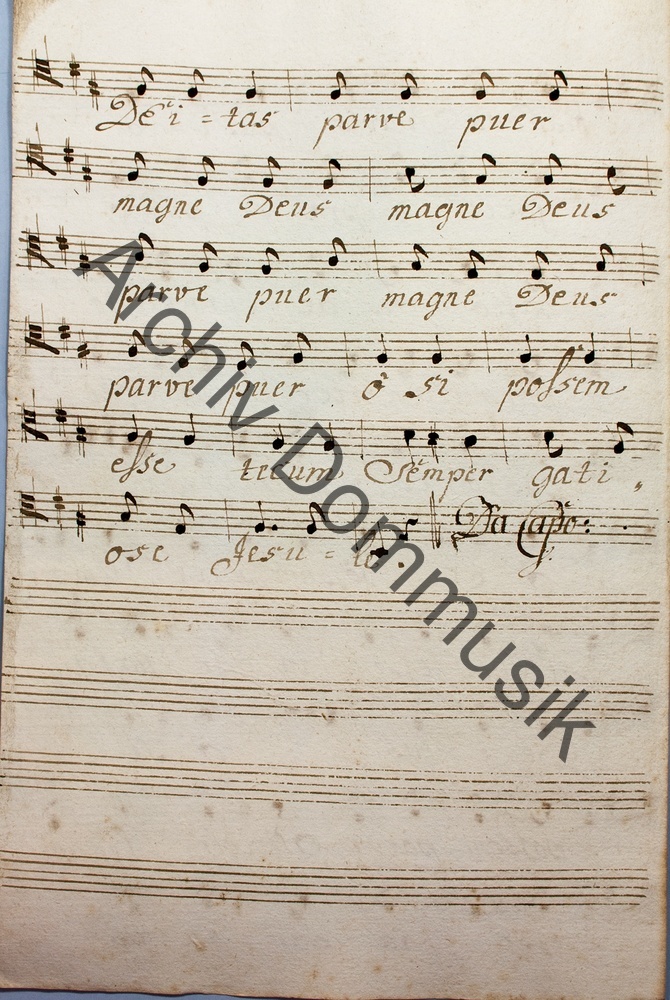 Dëi = tas parve puer
magne Deus magne Deus
parve puer magne Deus
parve puer ô si poſsem
eſse tecum Semper gati „
ose Jesu = le. Da Capo:
Archiv Dommusik